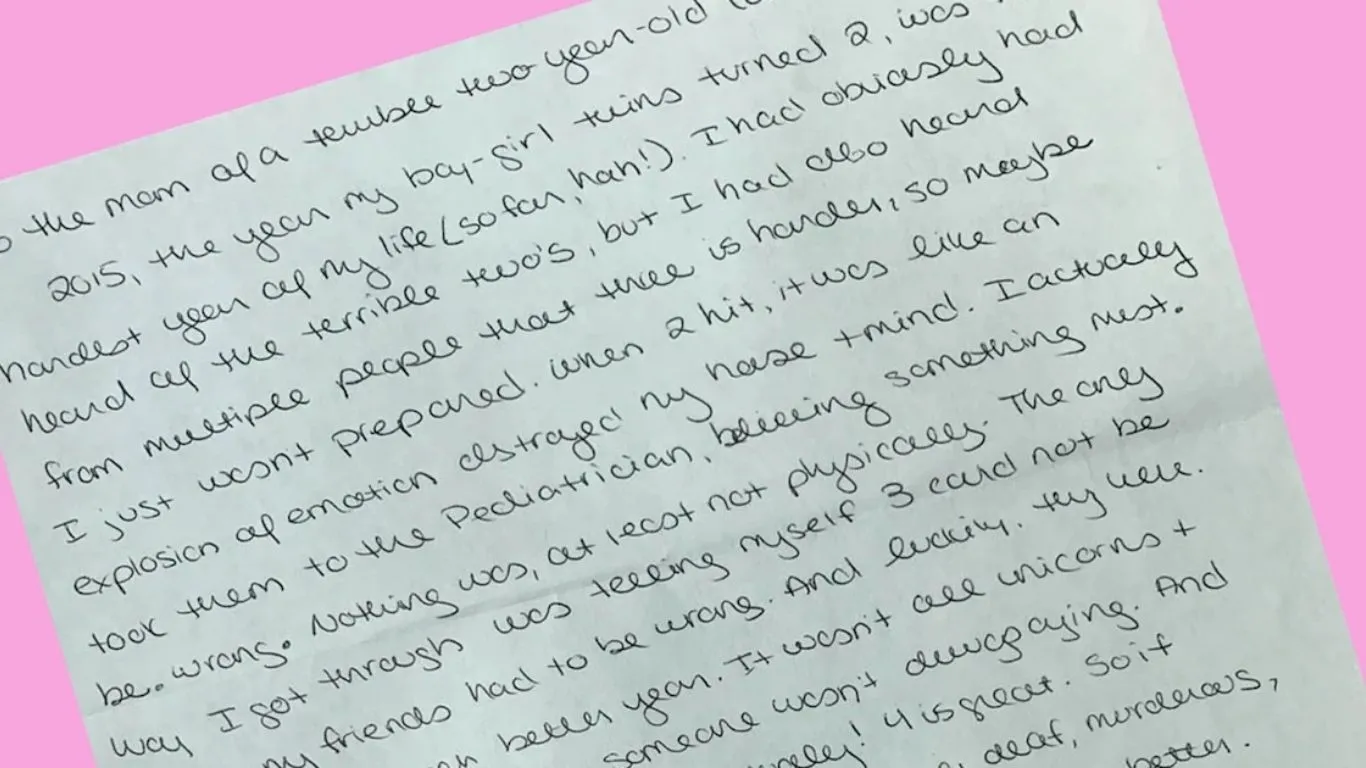 the mom of a terrible two year-old
2015, the year my boy-girl twins turned 2, was
hardest year of my life (so far, hah!). I had obviously had
heard of the terrible two's, but I had also heard
from multiple people that three is harder, so maybe
I just wasn't prepared. When 2 hit, it was like an
explosion of emotion destroyed my house + mind. I actually
took them to the Pediatrician, believing something must.
be. wrong. Nothing was, at least not physically. The only
way I got through was telling myself 3 could not be
my friends had to be wrong. And luckily, they were.
better year. It wasn't all unicorns +
someone wasn't always crying. And
4 is great. So if
deaf, murderous,
better.